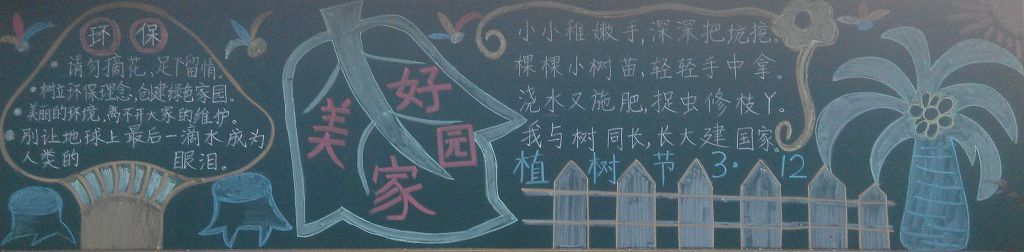 环 保
• 请勿摘花,足下留情.
• 树立环保理念,创建绿色家园。
• 美丽的环境,离不开大家的维护。
• 别让地球上最后一滴水成为
人类的 眼泪。
美好家园
小小稚嫩手,深深把坑挖。
棵棵小树苗,轻轻手中拿。
浇水又施肥,捉虫修枝丫。
我与树同长,长大建国家。
植树节 3·12